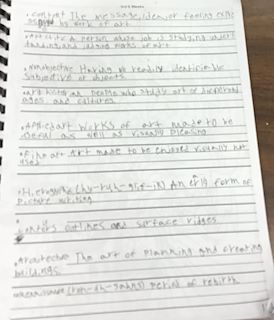 • content The message, idea, or feeling expre
by work of art
A person whose job is studying, under
tanding, and judging works of art
• Nonobjective Having no readily identifiable
subjects or objects
• art historian People who study art of different
ages and cultures
• Applied art Works of art made to be
useful as well as visually pleasing
• Fine art Art made to be enjoyed visually not
used
• Hieroglyphic (hy-ruh-glif-ik) An erly form of
picture writing
outlines and surface ridges
The art of planning and creating
buildings
period of rebirth